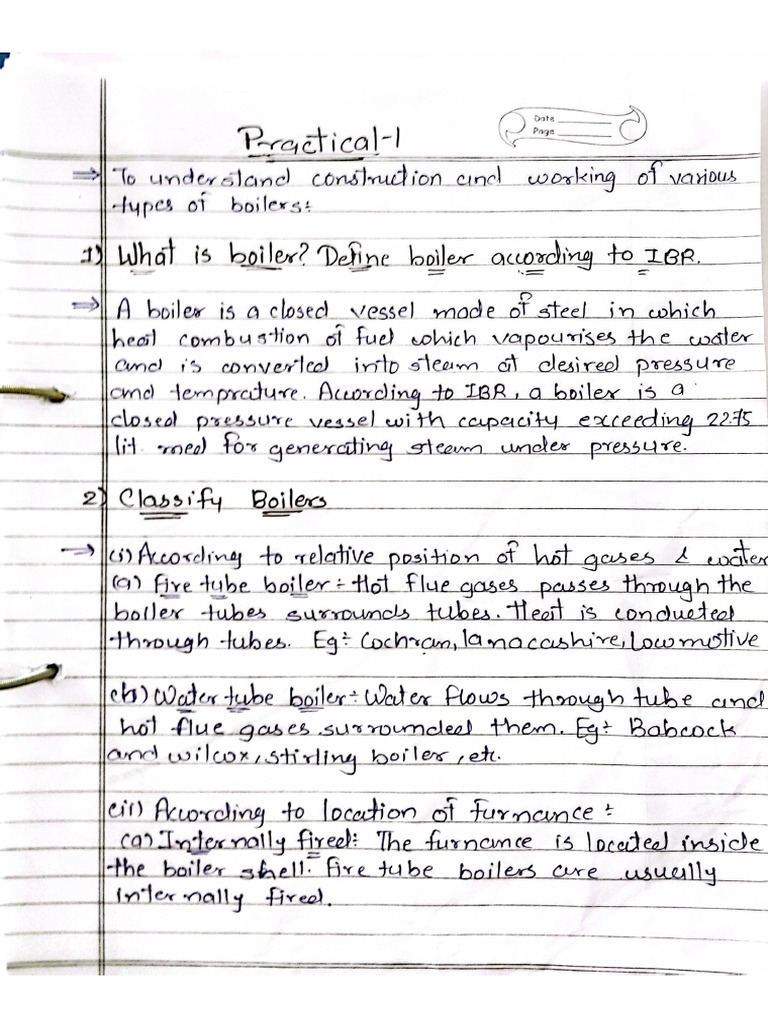 Date
Page
Practical-1
⇒ To understand construction and working of various
types of boilers:
1) What is boiler? Define boiler according to IBR.
⇒ A boiler is a closed vessel made of steel in which
heat combustion of fuel which vapourises the water
and is converted into steam at desired pressure
and temprature. According to IBR, a boiler is a
closed pressure vessel with capacity exceeding 22.75
lit. for generating steam under pressure.
2) Classify Boilers
→ (i) According to relative position of hot gases & water
(a) Fire tube boiler:- Hot flue gases passes through the
boiler tubes surrounds tubes. Heat is conducted
through tubes. Eg:- Cochran, lanacashire, Lowmotive
(b) Water tube boiler:- Water flows through tube and
hot flue gases surrounded them. Eg:- Babcock
and wilcox, stirling boiler, etc.
(ii) According to location of furnance:-
(a) Internally fired: The furnance is located inside
the boiler shell. Fire tube boilers are usually
internally fired.